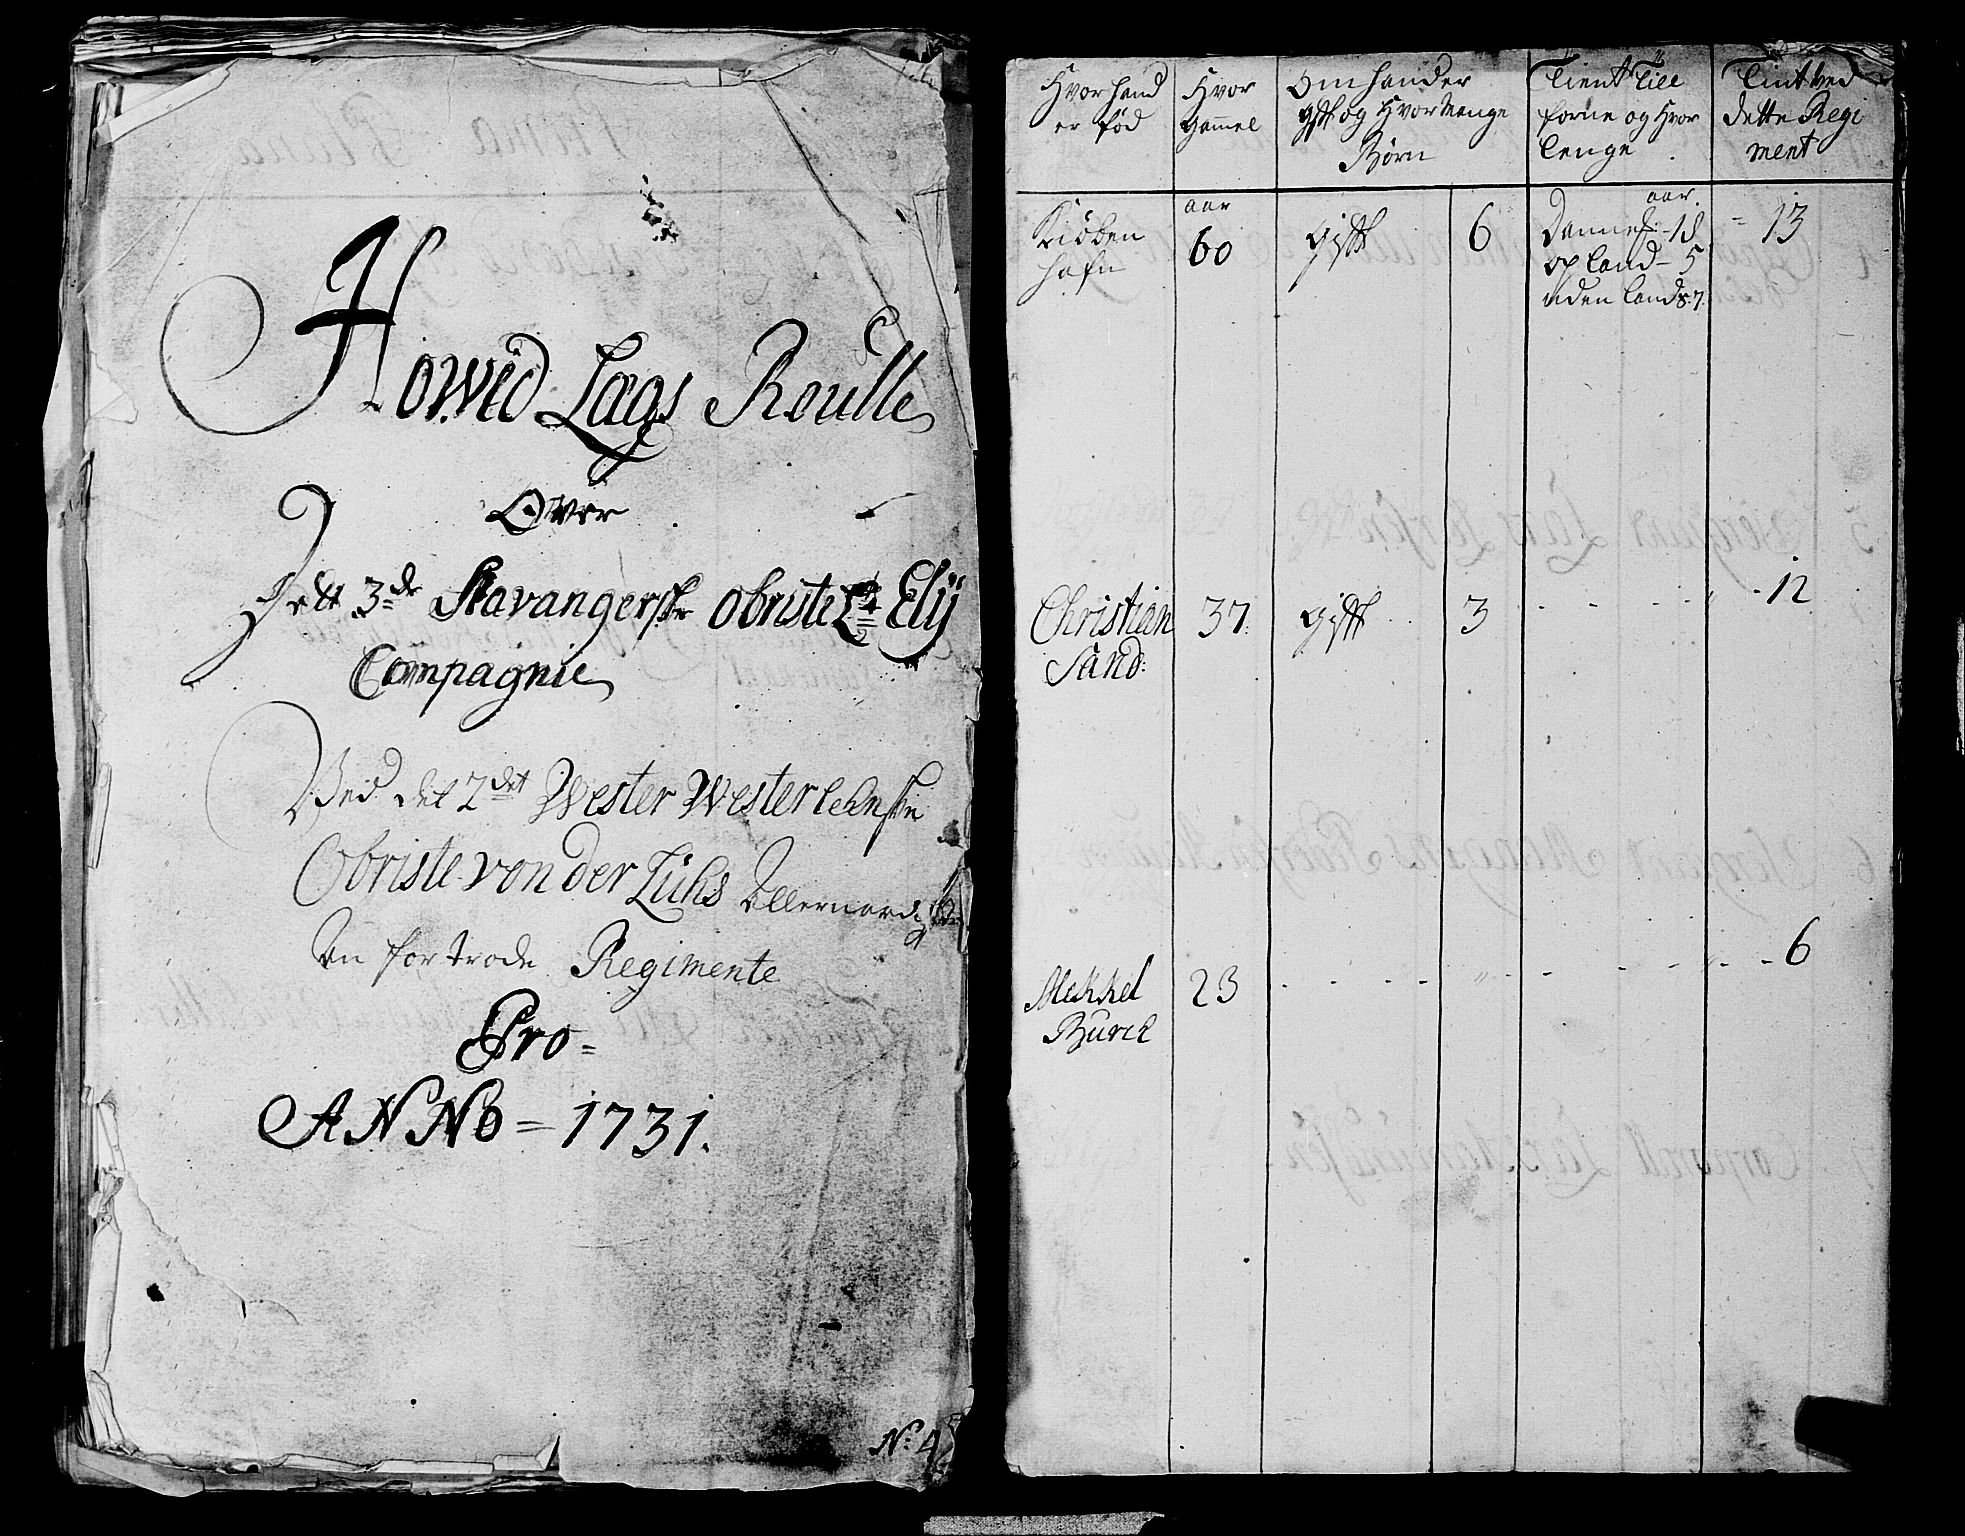 Howed Lags Roulle
Over
Dett 3de Stavangerske Obriste Lt Elij
Compagnie
Ved det 2det Wester Westerlehnske
Obriste von der Lühs Allernaadigst
An for trode Regimente
Pro =
ANNO = 1731.
No 4
Hvor hand
er fød
Hvor
Gammel
Om hand er
Gift og Hvor Mange
Børn
Tient Till
forne og Hvor
Lenge
Tint ved
dette Regi
ment
Kiøben
hafn
aar
60
Gift
6
aar.
op Land - 5
uden Lands: 7.
= 13
Christian
Sand:
37.
Gift
3
12
Mekkel
Burch
23
6